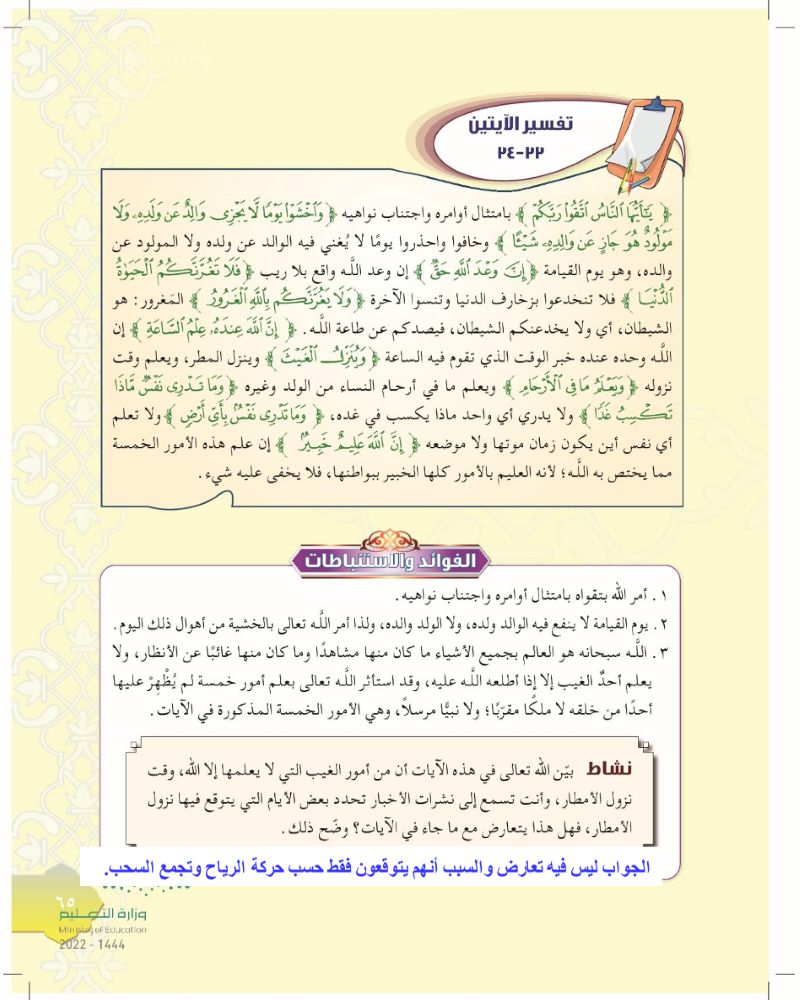 تفسير الآيتين
٢٢-٢٤
﴿ يَٰٓأَيُّهَا ٱلنَّاسُ ٱتَّقُوا۟ رَبَّكُمْ ﴾ بامتثال أوامره واجتناب نواهيه ﴿ وَٱخْشَوْا۟ يَوْمًا لَّا يَجْزِى وَالِدٌ عَن وَلَدِهِۦ وَلَا
مَوْلُودٌ هُوَ جَازٍ عَن وَالِدِهِۦ شَيْـًٔا ﴾ وخافوا واحذروا يومًا لا يُغني فيه الوالد عن ولده ولا المولود عن
والده، وهو يوم القيامة ﴿ إِنَّ وَعْدَ ٱللَّهِ حَقٌّ ﴾ إن وعد اللَّه واقع بلا ريب ﴿ فَلَا تَغُرَّنَّكُمُ ٱلْحَيَوٰةُ
ٱلدُّنْيَا ﴾ فلا تنخدعوا بزخارف الدنيا وتنسوا الآخرة ﴿ وَلَا يَغُرَّنَّكُم بِٱللَّهِ ٱلْغَرُورُ ﴾ المَغرور: هو
الشيطان، أي ولا يخدعنكم الشيطان، فيصدكم عن طاعة اللَّه. ﴿ إِنَّ ٱللَّهَ عِندَهُۥ عِلْمُ ٱلسَّاعَةِ ﴾ إن
اللَّه وحده عنده خبر الوقت الذي تقوم فيه الساعة ﴿ وَيُنَزِّلُ ٱلْغَيْثَ ﴾ وينزل المطر، ويعلم وقت
نزوله ﴿ وَيَعْلَمُ مَا فِى ٱلْأَرْحَامِ ﴾ ويعلم ما في أرحام النساء من الولد وغيره ﴿ وَمَا تَدْرِى نَفْسٌ مَّاذَا
تَكْسِبُ غَدًا ﴾ ولا يدري أي واحد ماذا يكسب في غده، ﴿ وَمَا تَدْرِى نَفْسٌۢ بِأَىِّ أَرْضٍ ﴾ ولا تعلم
أي نفس أين يكون زمان موتها ولا موضعه ﴿ إِنَّ ٱللَّهَ عَلِيمٌ خَبِيرٌۢ ﴾ إن علم هذه الأمور الخمسة
مما يختص به اللَّه؛ لأنه العليم بالأمور كلها الخبير ببواطنها، فلا يخفى عليه شيء.
الفوائد والاستنباطات
١. أمر الله بتقواه بامتثال أوامره واجتناب نواهيه.
٢. يوم القيامة لا ينفع فيه الوالد ولده، ولا الولد والده، ولذا أمر اللَّه تعالى بالخشية من أهوال ذلك اليوم.
٣. اللَّه سبحانه هو العالم بجميع الأشياء ما كان منها مشاهدًا وما كان منها غائبًا عن الأنظار، ولا
يعلم أحدٌ الغيب إلا إذا أطلعه اللَّه عليه، وقد استأثر اللَّه تعالى بعلم أمور خمسة لم يُظْهِرْ عليها
أحدًا من خلقه لا ملكًا مقرّبًا؛ ولا نبيًّا مرسلاً، وهي الأمور الخمسة المذكورة في الآيات.
نشاط بيّن الله تعالى في هذه الآيات أن من أمور الغيب التي لا يعلمها إلا الله، وقت
نزول الأمطار، وأنت تسمع إلى نشرات الأخبار تحدد بعض الأيام التي يتوقع فيها نزول
الأمطار، فهل هذا يتعارض مع ما جاء في الآيات؟ وضّح ذلك.
الجواب ليس فيه تعارض والسبب أنهم يتوقعون فقط حسب حركة الرياح وتجمع السحب.
٦٥
وزارة التعليم
Ministry of Education
2022 - 1444